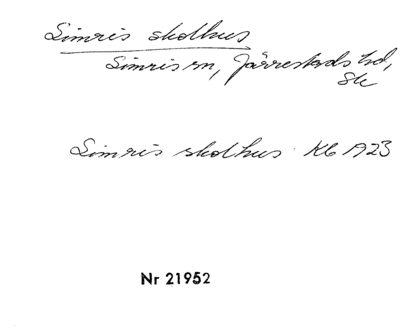 Simris skolhus
Simris sn, Järrestads hd,
Sk
Simris skolhus Kb A23
Nr 21952